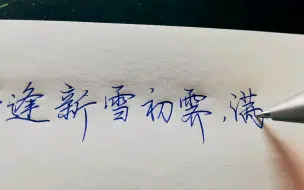 逢新雪初霁,满